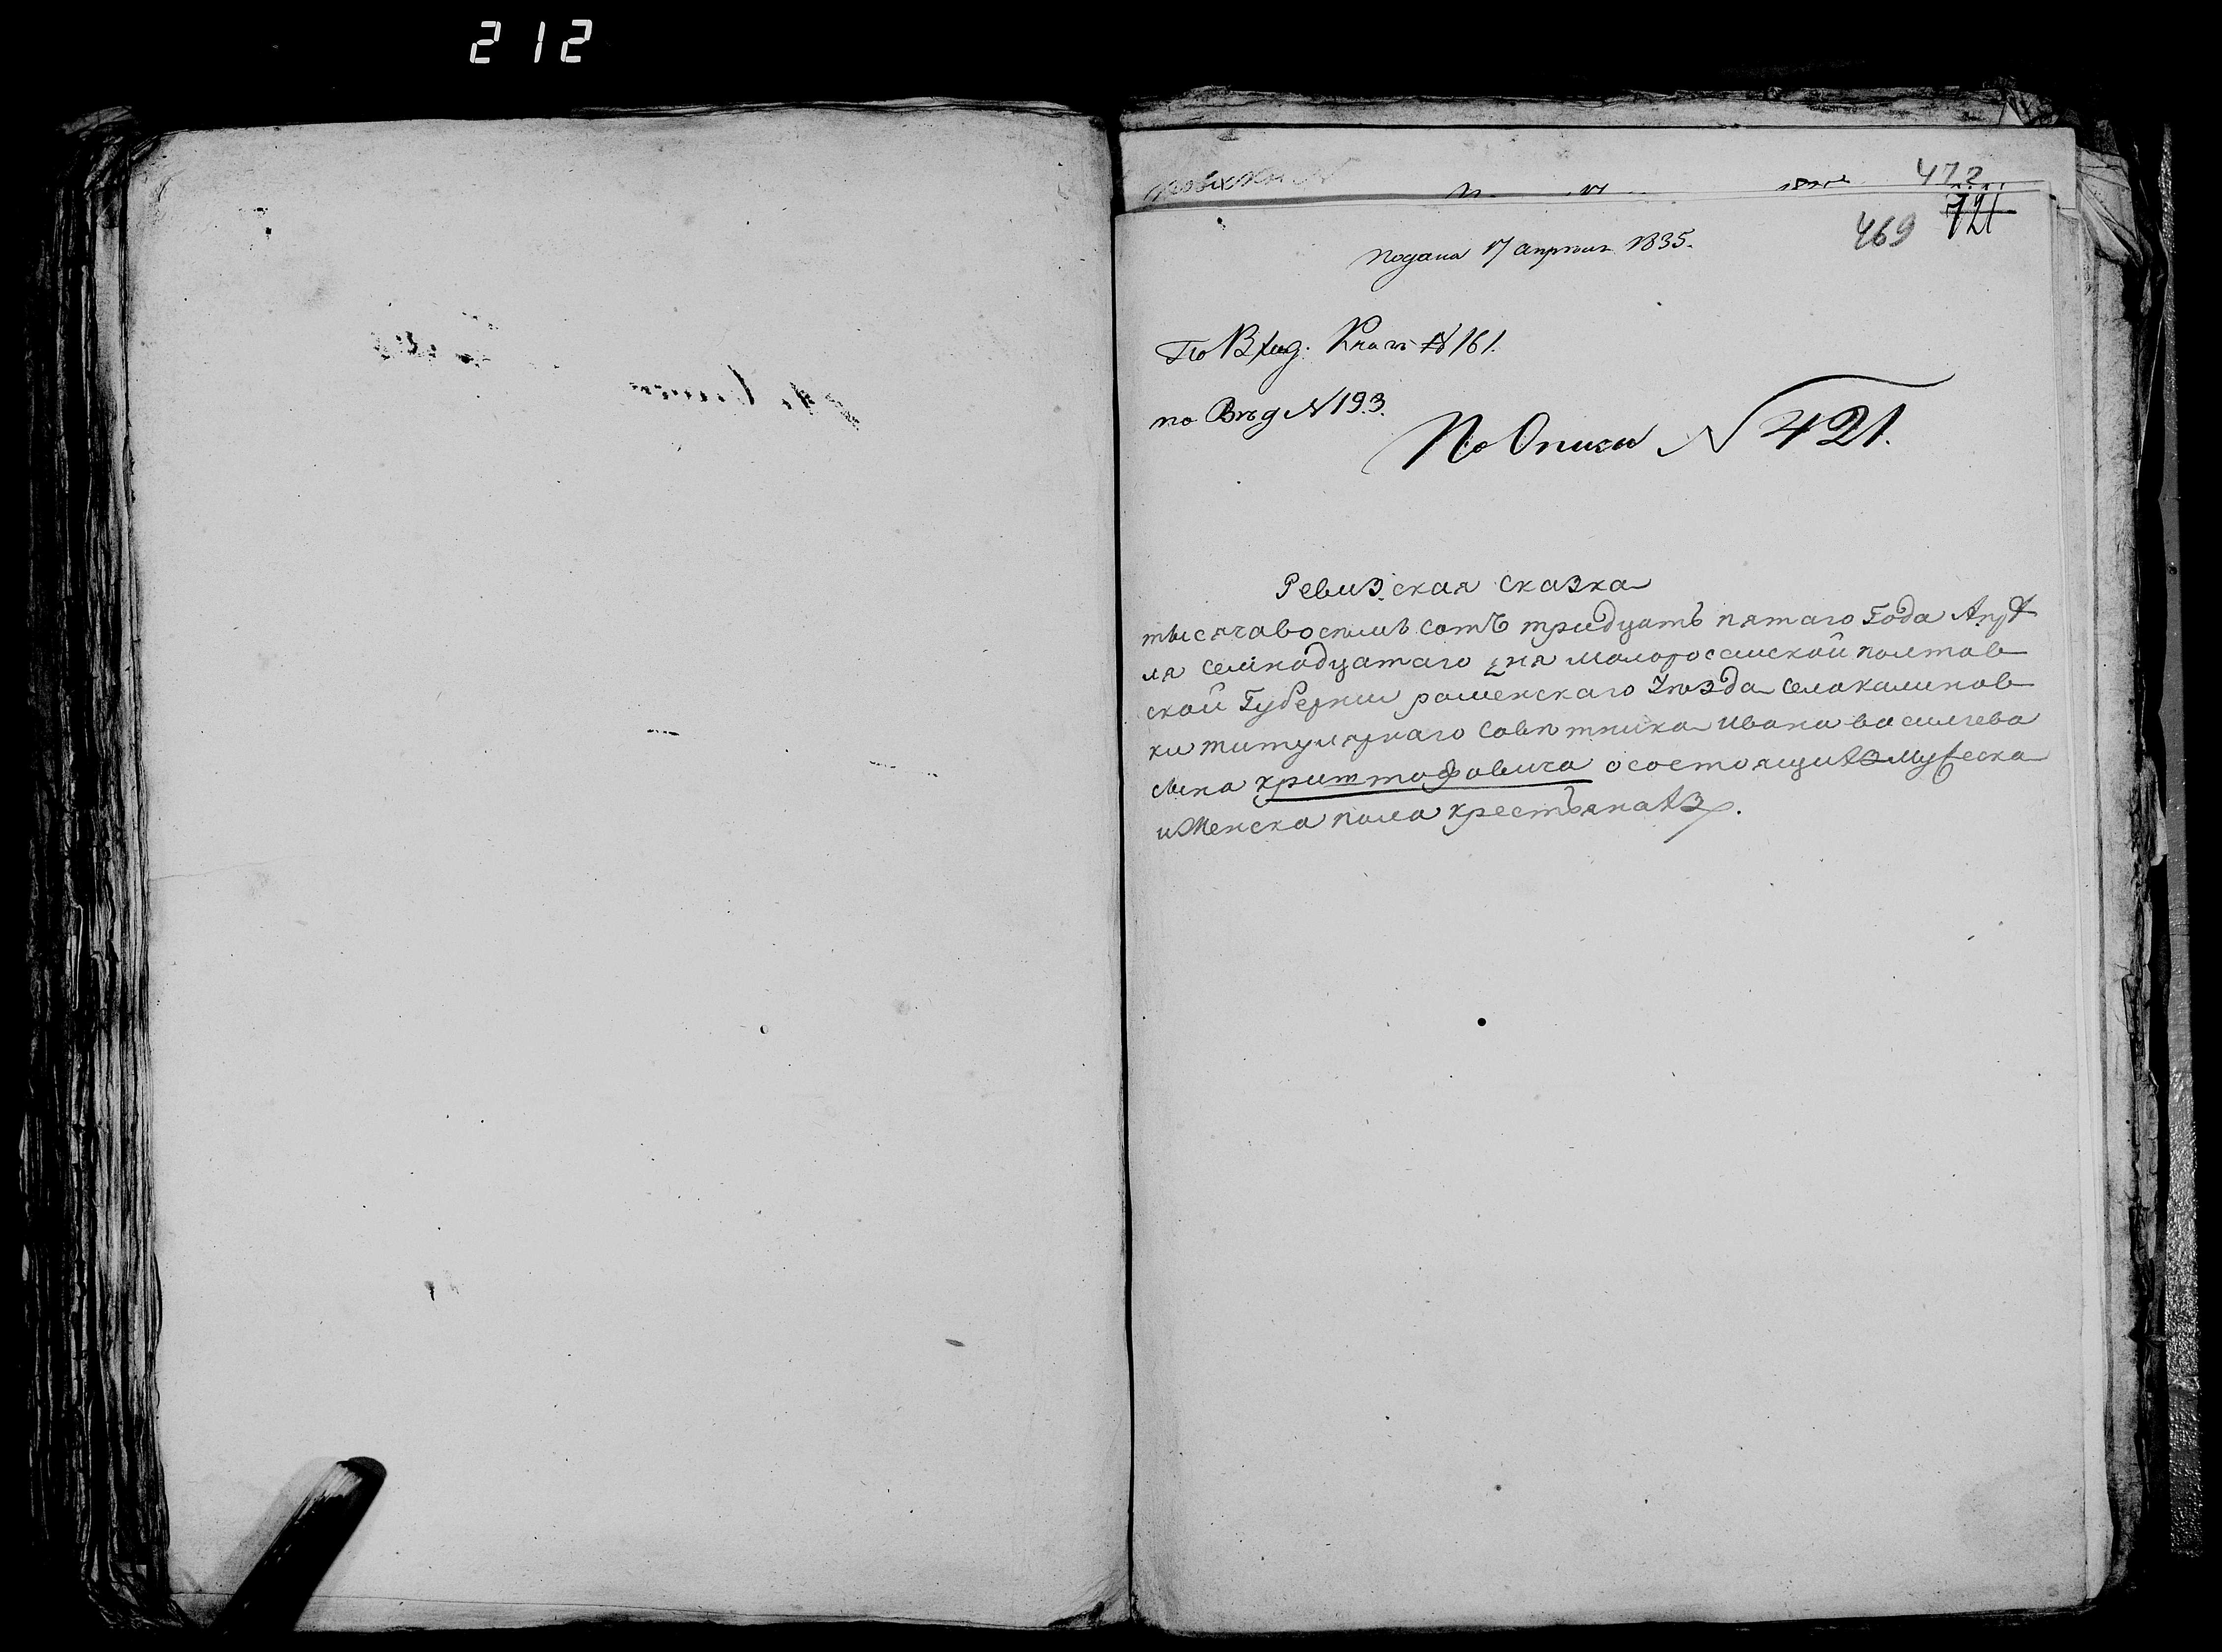 212
472
721
469
подана 17 апреля 1835.
По Вход. Книге № 161.
по Вѣд № 193.
По Описи № 421.
Ревизская сказка
тысяча восемь сотъ тридцать пятаго Года Апрѣ
ля семнадцатаго дня малоросииской полтав
ской Губернии роменскаго уѣзда села калинов
ки титулярнаго Совѣтника ивана василиева
сына криштофовича о состоящихъ мужеска
и Женска пола крестьянахъ.